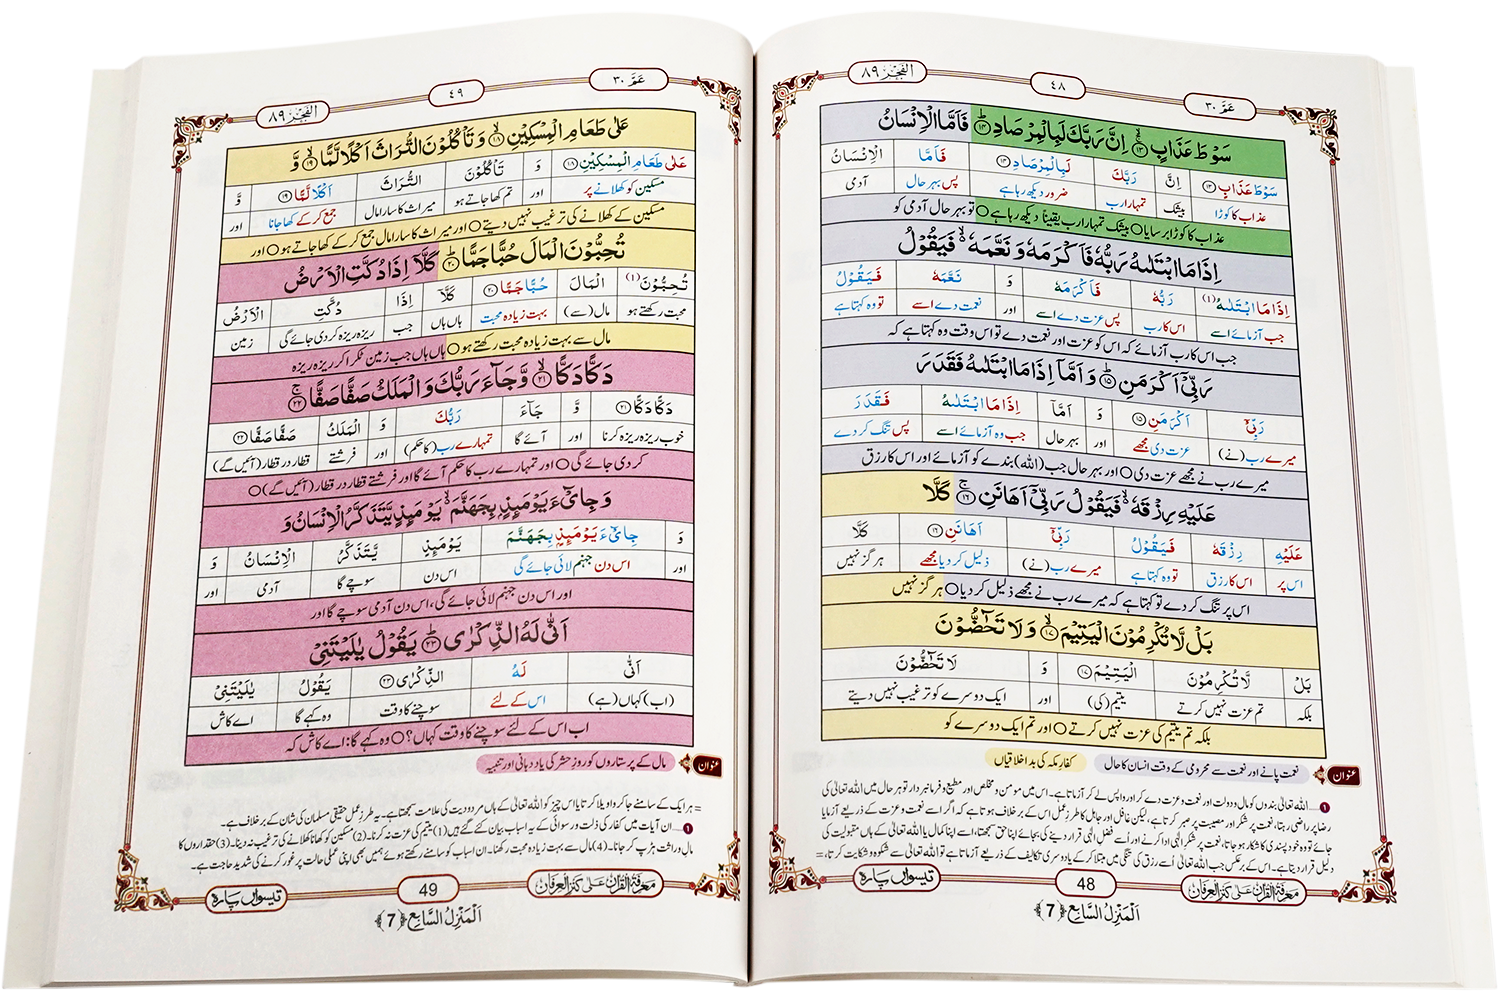 الفجر ٨٩
٤٨
عَمَّ ٣٠
سَوْطَ عَذَابٍ ﴿١٣﴾ اِنَّ رَبَّكَ لَبِالْمِرْصَادِ ﴿١٤﴾ فَاَمَّا الْاِنْسَانُ
سَوْطَ عَذَابٍ ﴿١٣﴾ اِنَّ رَبَّكَ لَبِالْمِرْصَادِ ﴿١٤﴾ فَاَمَّا الْاِنْسَانُ
عذاب کا کوڑا بیشک تمہارا رب ضرور دیکھ رہا ہے پس بہر حال آدمی
عذاب کا کوڑا برسایا○ بیشک تمہارا رب یقینا دیکھ رہا ہے○ تو بہر حال آدمی کو
اِذَا مَا ابْتَلٰىهُ رَبُّهٗ فَاَكْرَمَهٗ وَ نَعَّمَهٗ فَيَقُوْلُ
اِذَا مَا ابْتَلٰىهُ (١) رَبُّهٗ فَاَكْرَمَهٗ وَ نَعَّمَهٗ فَيَقُوْلُ
جب آزمائے اسے اس کا رب پس عزت دے اسے اور نعمت دے اسے تو وہ کہتا ہے
جب اس کا رب آزمائے کہ اس کو عزت اور نعمت دے تو اس وقت وہ کہتا ہے کہ
رَبِّيْۤ اَكْرَمَنِ ﴿١٥﴾ وَ اَمَّاۤ اِذَا مَا ابْتَلٰىهُ فَقَدَرَ
رَبِّيْۤ اَكْرَمَنِ ﴿١٥﴾ وَ اَمَّاۤ اِذَا مَا ابْتَلٰىهُ فَقَدَرَ
میرے رب (نے) عزت دی مجھے اور بہر حال جب وہ آزمائے اسے پس تنگ کر دے
میرے رب نے مجھے عزت دی○ اور بہر حال جب (اللہ) بندے کو آزمائے اور اس کا رزق
عَلَيْهِ رِزْقَهٗ فَيَقُوْلُ رَبِّيْۤ اَهَانَنِ ﴿١٦﴾ كَلَّا
عَلَيْهِ رِزْقَهٗ فَيَقُوْلُ رَبِّيْۤ اَهَانَنِ ﴿١٦﴾ كَلَّا
اس پر اس کا رزق تو وہ کہتا ہے میرے رب (نے) ذلیل کر دیا مجھے ہرگز نہیں
اس پر تنگ کر دے تو کہتا ہے کہ میرے رب نے مجھے ذلیل کر دیا○ ہرگز نہیں
بَلْ لَّا تُكْرِمُوْنَ الْيَتِيْمَ ﴿١٧﴾ وَ لَا تَحٰٓضُّوْنَ
بَلْ لَّا تُكْرِمُوْنَ الْيَتِيْمَ ﴿١٧﴾ وَ لَا تَحٰٓضُّوْنَ
بلکہ تم عزت نہیں کرتے یتیم (کی) اور ایک دوسرے کو ترغیب نہیں دیتے
بلکہ تم یتیم کی عزت نہیں کرتے○ اور تم ایک دوسرے کو
عنوان نعمت پانے اور نعمت سے محرومی کے وقت انسان کا حال کفارِ مکہ کی بداخلاقیاں
١... اللہ تعالیٰ بندوں کو مال و دولت اور نعمت و عزت دے کر اور واپس لے کر آزماتا ہے۔ اس میں مومن و مخلص اور مطیع و فرمانبردار تو ہر حال میں اللہ تعالیٰ کی
رضا پر راضی رہتا، نعمت پر شکر اور مصیبت پر صبر کرتا ہے، لیکن غافل اور جاہل کا طرزِ عمل اس کے برخلاف ہوتا ہے کہ اگر اسے نعمت و عزت کے ذریعے آزمایا
جائے تو وہ خود پسندی کا شکار ہو جاتا، نعمت پر شکرِ الٰہی ادا کرنے اور اُسے فضلِ الٰہی قرار دینے کی بجائے اپنا حق سمجھتا، اسے اپنا کمال یا اللہ تعالیٰ کے ہاں مقبولیت کی
دلیل قرار دیتا ہے۔ اس کے برعکس جب اللہ تعالیٰ اُسے رزق کی تنگی میں مبتلا کر کے یا دوسری تکالیف کے ذریعے آزماتا ہے تو اللہ تعالیٰ سے شکوہ و شکایت کرتا، =
معرفۃ القرآن علیٰ کنز العرفان
48
تیسواں پارہ
اَلْمَنْزِلُ السَّابِعُ ﴿7﴾
الفجر ٨٩
٤٩
عَمَّ ٣٠
عَلٰى طَعَامِ الْمِسْكِيْنِ ﴿١٨﴾ وَ تَاْكُلُوْنَ التُّرَاثَ اَكْلًا لَّمًّا ﴿١٩﴾ وَّ
عَلٰى طَعَامِ الْمِسْكِيْنِ ﴿١٨﴾ وَ تَاْكُلُوْنَ التُّرَاثَ اَكْلًا لَّمًّا ﴿١٩﴾ وَّ
مسکین کو کھلانے پر اور تم کھا جاتے ہو میراث کا سارا مال جمع کر کے کھا جانا اور
مسکین کے کھلانے کی ترغیب نہیں دیتے○ اور میراث کا سارا مال جمع کر کے کھا جاتے ہو○ اور
تُحِبُّوْنَ الْمَالَ حُبًّا جَمًّا ﴿٢٠﴾ كَلَّاۤ اِذَا دُكَّتِ الْاَرْضُ
تُحِبُّوْنَ (١) الْمَالَ حُبًّا جَمًّا ﴿٢٠﴾ كَلَّاۤ اِذَا دُكَّتِ الْاَرْضُ
محبت رکھتے ہو مال (سے) بہت زیادہ محبت ہاں ہاں جب ریزہ ریزہ کر دی جائے گی زمین
مال سے بہت زیادہ محبت رکھتے ہو○ ہاں ہاں جب زمین ٹکرا کر ریزہ ریزہ
دَكًّا دَكًّا ﴿٢١﴾ وَّ جَآءَ رَبُّكَ وَ الْمَلَكُ صَفًّا صَفًّا ﴿٢٢﴾
دَكًّا دَكًّا ﴿٢١﴾ وَّ جَآءَ رَبُّكَ وَ الْمَلَكُ صَفًّا صَفًّا ﴿٢٢﴾
خوب ریزہ ریزہ کرنا اور آئے گا تمہارے رب (کا حکم) اور فرشتے قطار در قطار (آئیں گے)
کر دی جائے گی○ اور تمہارے رب کا حکم آئے گا اور فرشتے قطار در قطار (آئیں گے)○
وَ جِایْٓءَ یَوْمَىٕذٍۭ بِجَهَنَّمَ یَوْمَىٕذٍ یَّتَذَكَّرُ الْاِنْسَانُ وَ
وَ جِایْٓءَ یَوْمَىٕذٍۭ بِجَهَنَّمَ یَوْمَىٕذٍ یَّتَذَكَّرُ الْاِنْسَانُ وَ
اور اس دن جہنم لائی جائے گی اس دن سوچے گا آدمی اور
اور اس دن جہنم لائی جائے گی، اس دن آدمی سوچے گا اور
اَنّٰى لَهُ الذِّكْرٰى ﴿٢٣﴾ یَقُوْلُ یٰلَیْتَنِیْ
اَنّٰى لَهُ الذِّكْرٰى ﴿٢٣﴾ یَقُوْلُ یٰلَیْتَنِیْ
(اب) کہاں (ہے) اس کے لئے سوچنے کا وقت وہ کہے گا اے کاش
اب اس کے لئے سوچنے کا وقت کہاں؟○ وہ کہے گا: اے کاش کہ
عنوان مال کے پرستاروں کو روزِ حشر کی یاد دہانی اور تنبیہ
= ہر ایک کے سامنے جا کر واویلا کرتا یا اس چیز کو اللہ تعالیٰ کے ہاں مردودیت کی علامت سمجھتا ہے۔ یہ طرزِ عمل حقیقی مسلمان کی شان کے برخلاف ہے۔
١... ان آیات میں کفار کی ذلت و رسوائی کے یہ اسباب بیان کئے گئے ہیں (1) یتیم کی عزت نہ کرنا۔ (2) مسکین کو کھانا کھلانے کی ترغیب نہ دینا۔ (3) حقداروں کا
مالِ وراثت ہڑپ کر جانا۔ (4) مال سے بہت زیادہ محبت رکھنا۔ ان اسباب کو سامنے رکھتے ہوئے ہمیں بھی اپنی عملی حالت پر غور کرنے کی شدید حاجت ہے۔
معرفۃ القرآن علیٰ کنز العرفان
49
تیسواں پارہ
اَلْمَنْزِلُ السَّابِعُ ﴿7﴾